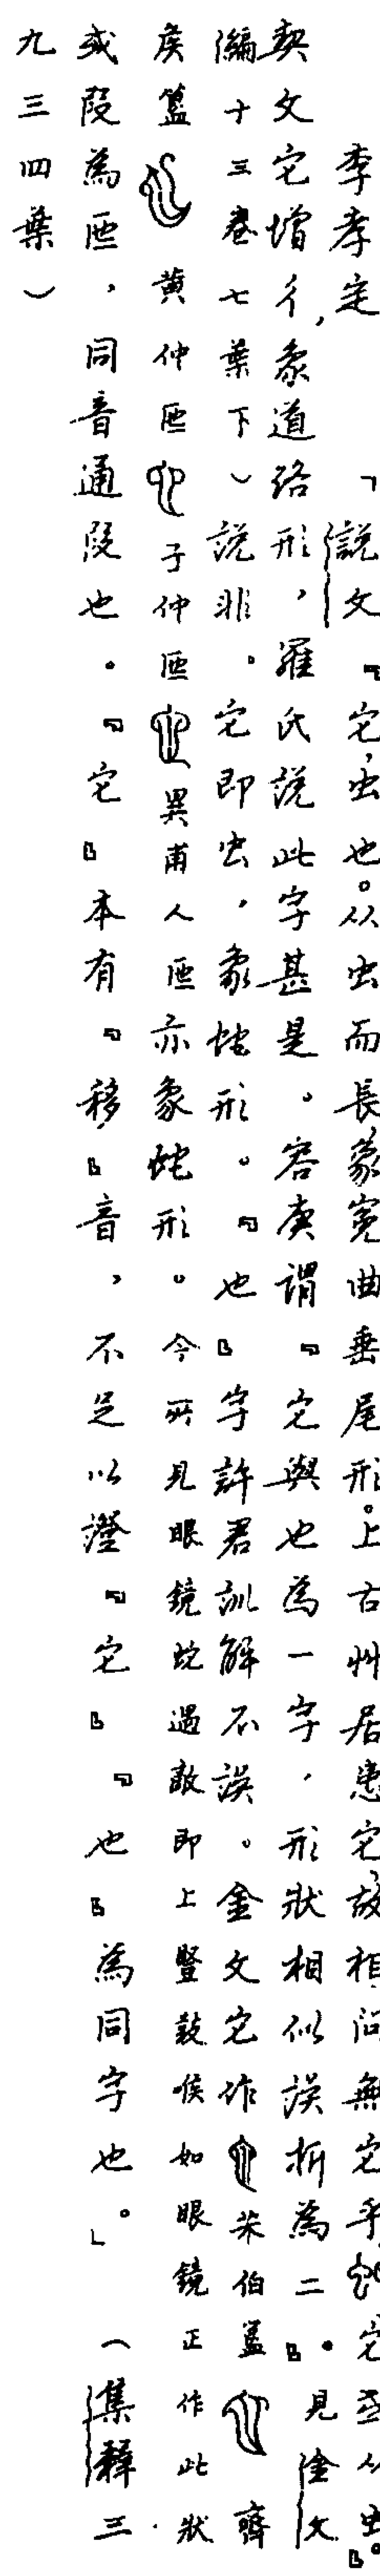 李孝定　「說文『宅,虫也。从虫而長象寃曲垂尾形。上古艸居患宅,故相問無宅乎 宅或从虫。』
契文宅增彳,象道路形,羅氏說此字甚是。容庚謂『宅與也為一字,形狀相似誤析為二』。見金文
編十三卷七葉下)說非。宅即虫,象蛇形。『也』字許君訓解不誤。金文宅作 伯 齊
矦簠 黄仲匜 子仲匜 異甫人匜亦象蛇形。今所見眼鏡蛇遇敵即上豎鼓喉如眼鏡正作此狀
或段為匜,同音通段也。『宅』本有『移』音,不足以證『宅』『也』為同字也。」(集釋三
九三四葉)